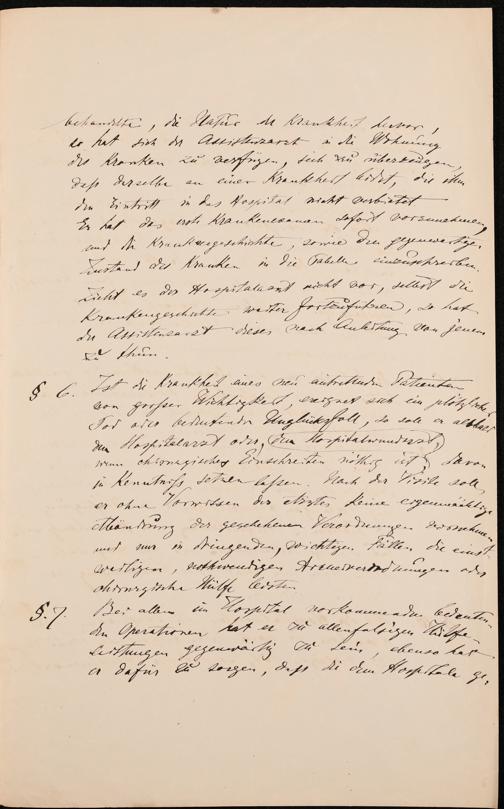 behandelte, die Natur der Krankheit hervor,
so hat sich der Assistenzarzt in die Wohnung
des Kranken zu verfügen, sich zu überzeugen,
daß derselbe an einer Krankheit leidet, die ihm
den Eintritt in das Hospital nicht verbietet
Er hat das Krankenexamen sofort vorzunehmen,
und die Krankengeschichte, sowie den gegenwärtigen
Zustand des Kranken in die Tabelle einzuschreiben.
Zieht es der Hospitalarzt nicht vor, selbst die
Krankengeschichte weiter fortzuführen, so hat
der Assistenzarzt dieses nach Anleitung von jenem
zu thun.
§ 6. Ist die Krankheit eines neu eintretenden Patienten
von großer Wichtigkeit, ereignet sich ein plötzlicher
Tod oder bedeutender Unglücksfall, so soll er alsbald
den Hospitalarzt oder, (den Hospitalwundarzt,
wenn chirurgisches Einschreiten nöthig ist) davon
in Kenntniß setzen lassen. Nach der Visite soll
er ohne Vorwissen der Aerzte keine eigenmächtige
Abändrung der geschehenen Verordnungen vornehmen
und nur in dringenden, wichtigen Fällen die einst
weiligen, nothwendigen Arzneiverordnungen oder
chirurgische Hülfe leisten
§. 7. Bei allen im Hospital vorkommenden bedeuten-
den Operationen hat er zu allenfalsigen Hülfe-
leistungen gegenwärtig zu sein, ebenso hat
er dafür zu sorgen, daß die dem Hospitale ge-